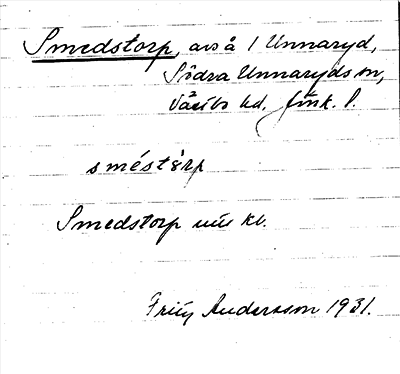 Smedstorp, avs å 1 Unnaryd,
Södra Unnaryds sn,
Västbo hd. Jönk. l.
sméstårp
Smedstorp
Fritz Andersson 1931.